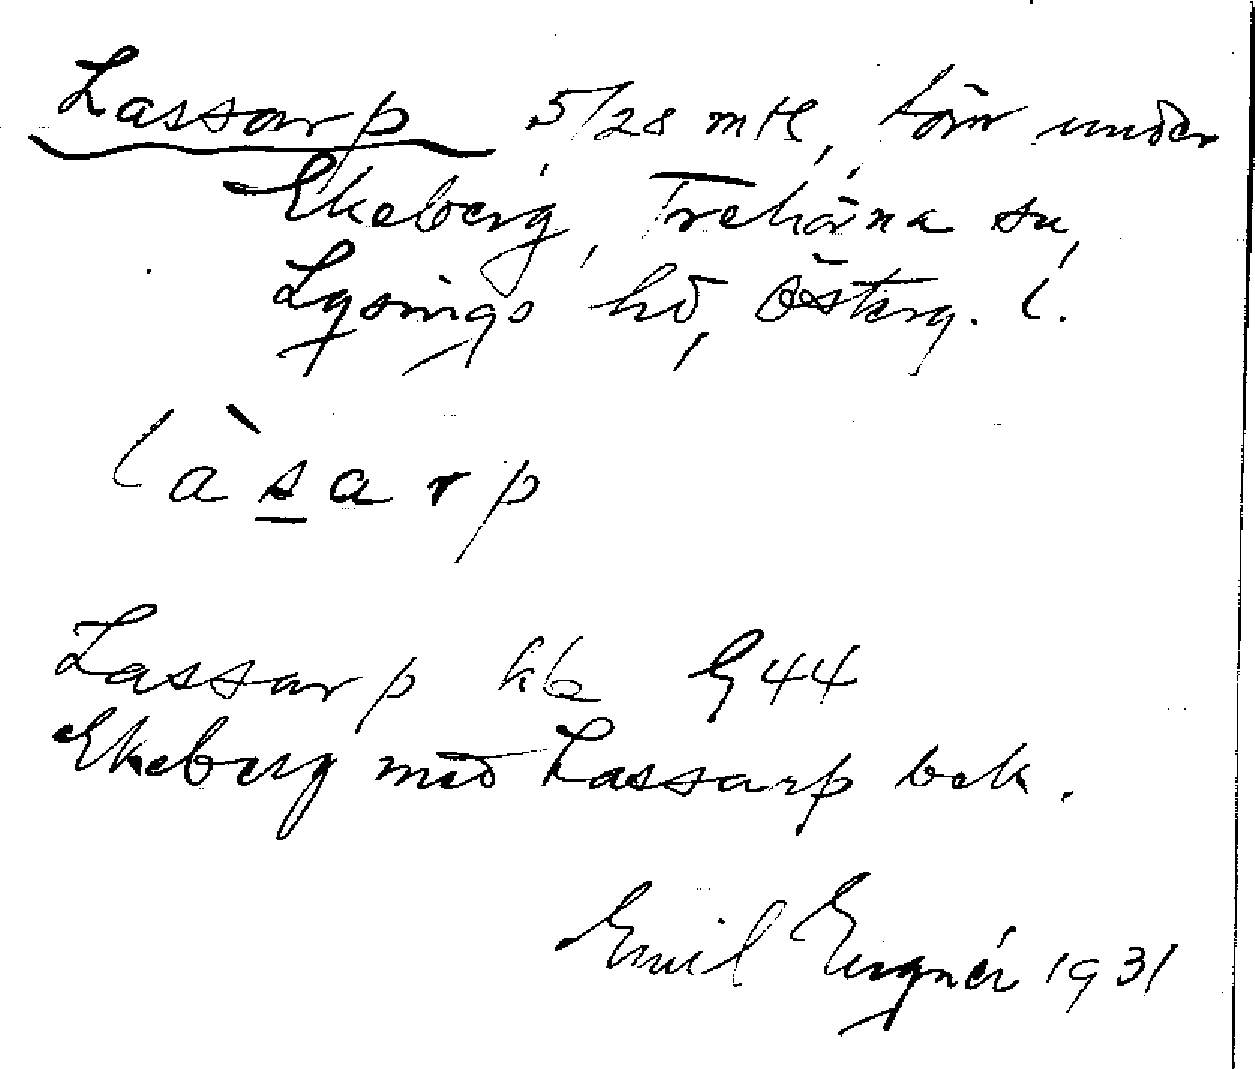 Lassarp 5/28 mtl, förr under
Ekeberg, Trehörna sn,
Lysings hd, Österg. l.
làsarp
Lassarp kb G44
Ekeberg med Lassarp bek.
Emil 1931